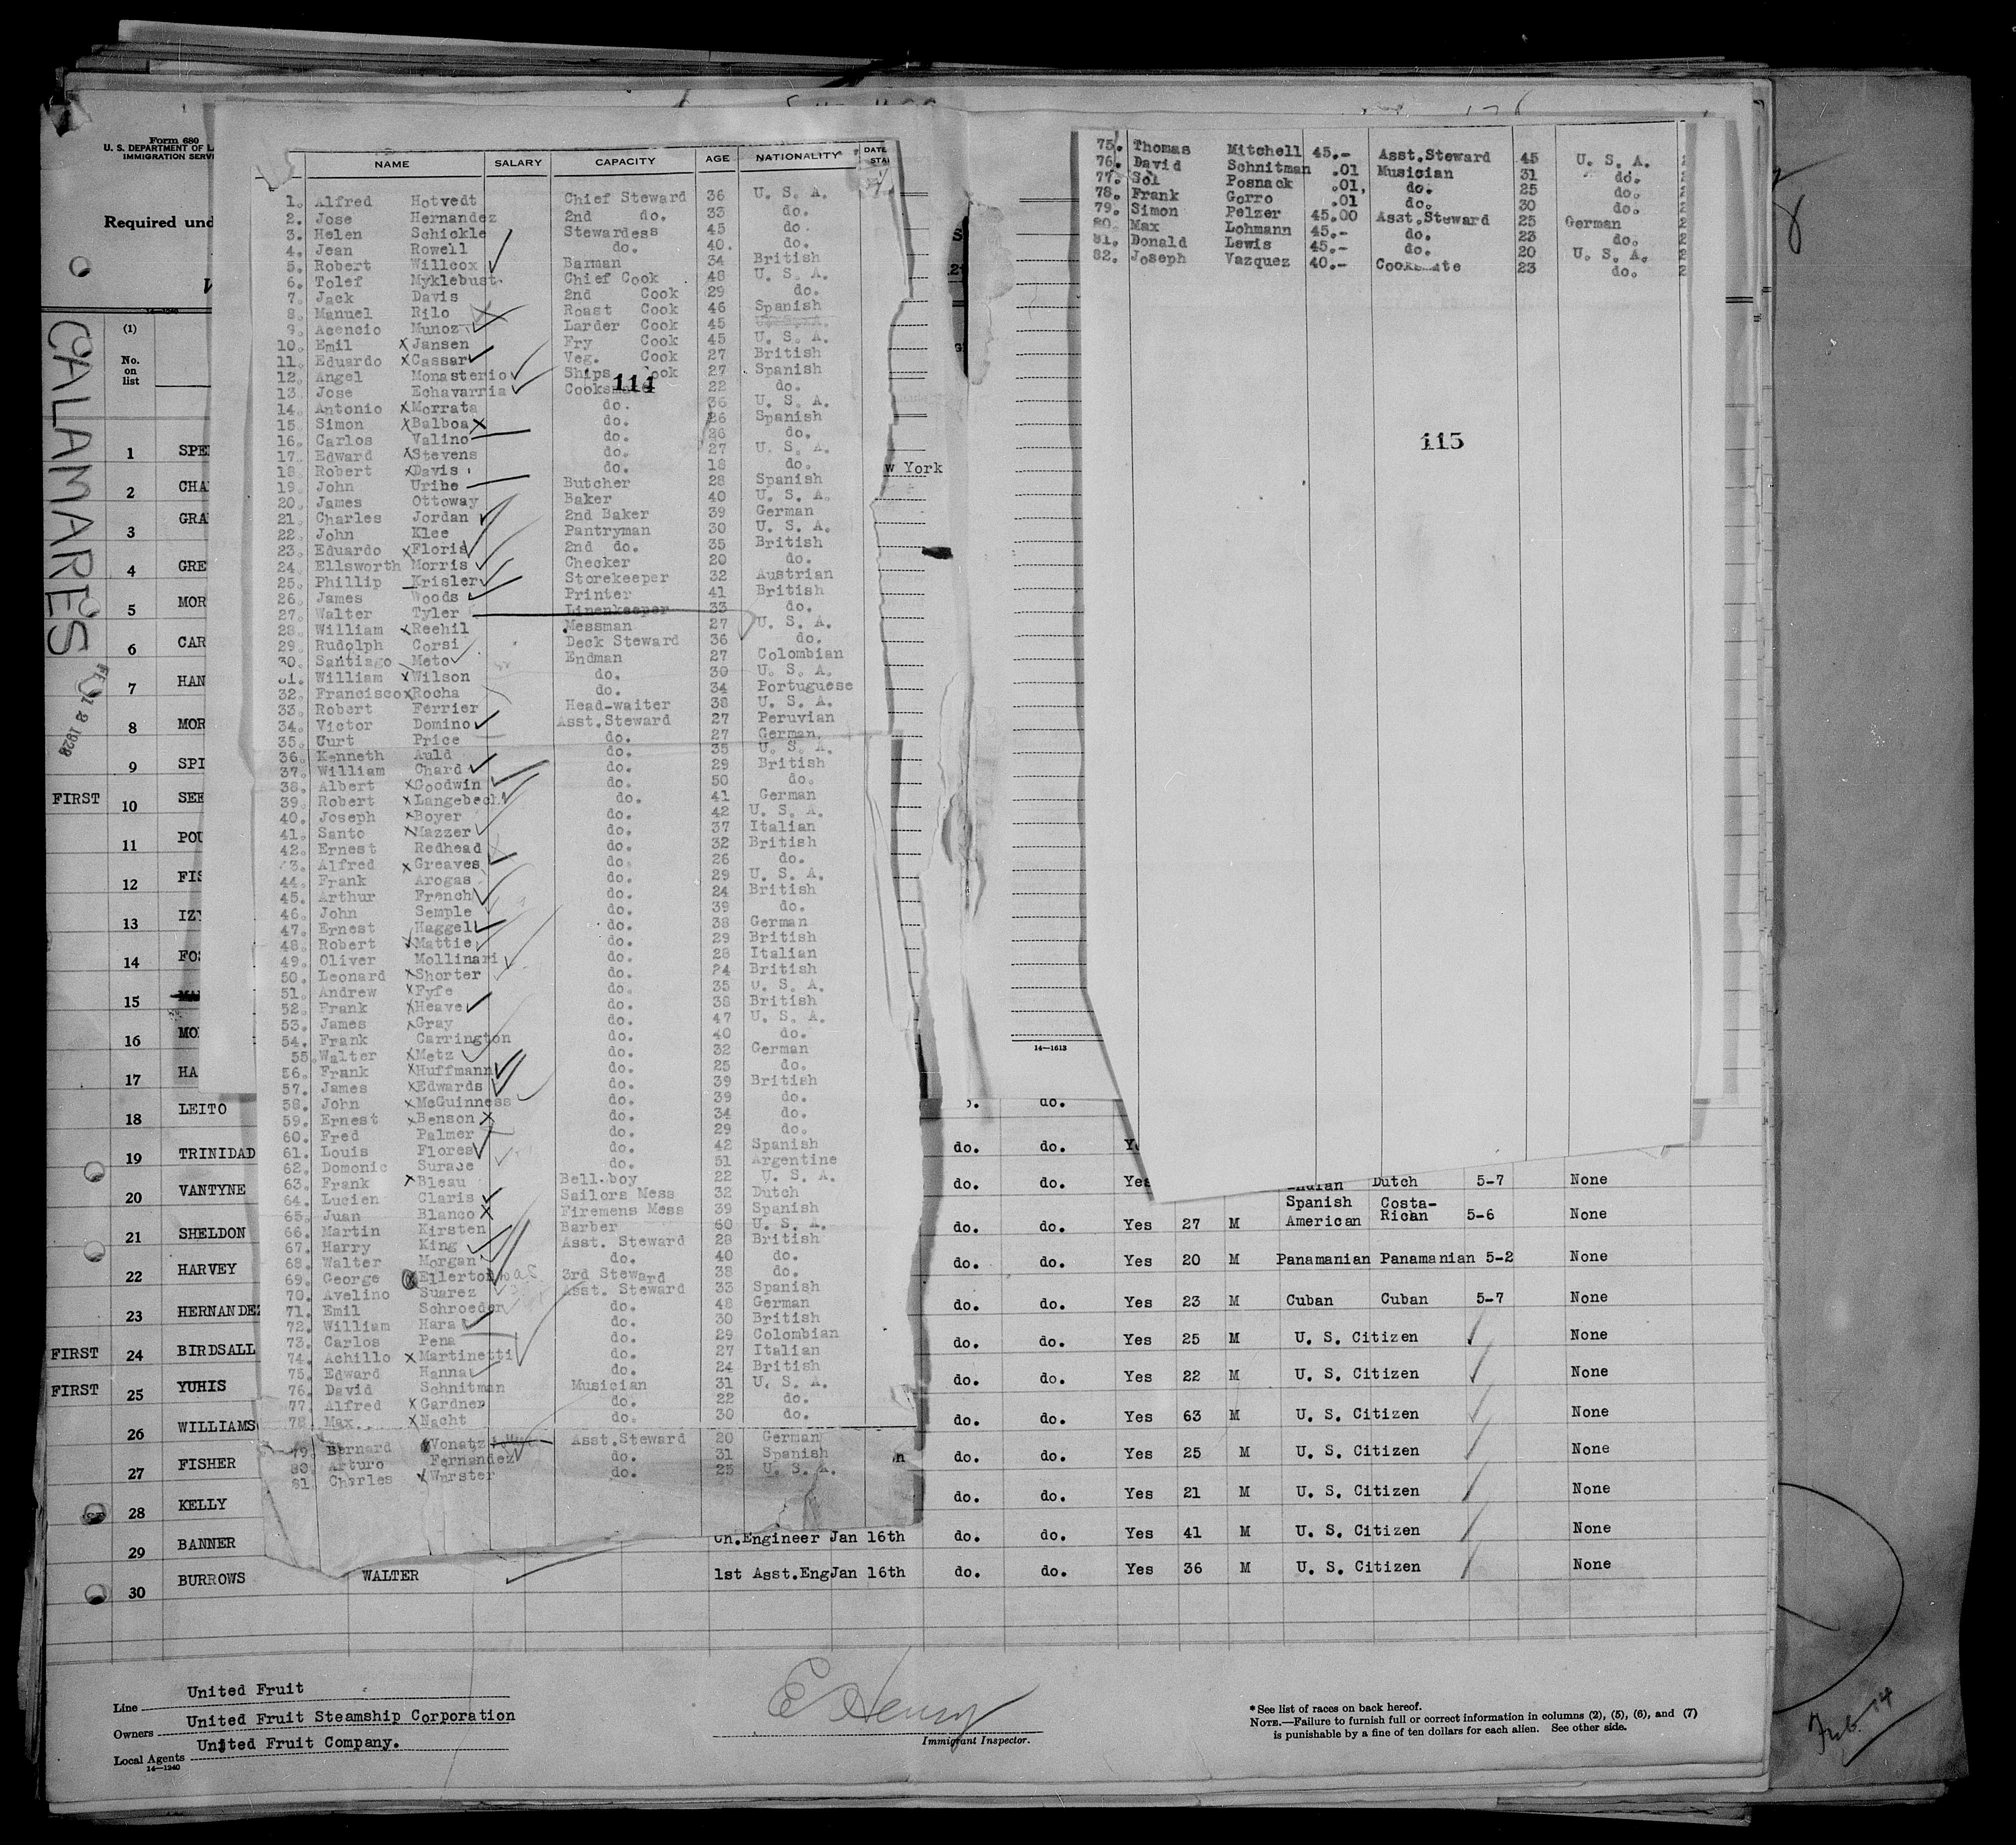 Form 680
U. S. DEPARTMENT OF
IMMIGRATION
Required
(1)
No.
on
list
CALAMARES
NAME SALARY CAPACITY AGE NATIONALITY DATE
1. Alfred Hotvedt Chief Steward 36 U. S. A.
2. Jose Hernandez 2nd do. 33 do.
3. Helen Schickle Stewardess 45 do.
4. Jean Rowell do. 40. do.
5. Robert Willcox Barman 34 British
6. Tolef Myklebust Chief Cook 48 U. S. A.
7. Jack Davis 2nd Cook 29 do.
8. Manuel Rilo Roast Cook 46 Spanish
9. Acencio Munoz Larder Cook 45 U. S. A.
10. Emil x Jansen Fry Cook 45 U. S. A.
11. Eduardo x Cassar Veg. Cook 27 British
12. Angel Monasterio Ships Cook 27 Spanish
13. Jose Echavarria Cooksmate 22 do.
114
14. Antonio x Morrata do. 36 U. S. A.
15. Simon x Balboa x do. 26 Spanish
16. Carlos Valino do. 26 do.
17. Edward x Stevens do. 27 U. S. A.
18. Robert x Davis do. 18 do.
19. John Uribe Butcher 28 Spanish
20. James Ottoway Baker 40 U. S. A.
21. Charles Jordan 2nd Baker 39 German
22. John Klee Pantryman 30 U. S. A.
23. Eduardo x Floris 2nd do. 35 British
24. Ellsworth Morris Checker 20 do.
25. Phillip Krisler Storekeeper 32 Austrian
26. James Woods Printer 41 British
27. Walter Tyler Linenkeeper 33 do.
28. William x Reehil Messman 27 U. S. A.
29. Rudolph Corsi Deck Steward 36 do.
30. Santiago Meto Endman 27 Colombian
31. William x Wilson do. 30 U. S. A.
32. Francisco x Rocha do. 34 Portuguese
33. Robert Ferrier Head-waiter 38 U. S. A.
34. Victor Domino Asst.Steward 27 Peruvian
35. Curt Price do. 27 German
36. Kenneth Auld do. 35 U. S. A.
37. William Chard do. 29 British
38. Albert x Goodwin do. 50 do.
39. Robert x Langebech do. 41 German
40. Joseph x Boyer do. 42 U. S. A.
41. Santo x Mazzer do. 37 Italian
42. Ernest Redhead do. 32 British
43. Alfred x Greaves do. 26 do.
44. Frank Arogas do. 29 U. S. A.
45. Arthur French do. 24 British
46. John Semple do. 39 do.
47. Ernest Haggel do. 38 German
48. Robert x Mattie do. 29 British
49. Oliver Mollinari do. 28 Italian
50. Leonard x Shorter do. 24 British
51. Andrew x Fyfe do. 35 U. S. A.
52. Frank x Heave do. 38 British
53. James x Gray do. 47 U. S. A.
54. Frank Carrington do. 40 do.
55. Walter x Metz do. 32 German
56. Frank x Huffmann do. 25 do.
57. James x Edwards do. 39 British
58. John x McGuinness do. 39 do.
59. Ernest x Benson x do. 34 do.
60. Fred Palmer do. 29 do.
61. Louis Flores do. 42 Spanish
62. Domonic Surace do. 51 Argentine
63. Frank x Bleau Bell.boy 22 U. S. A.
64. Lucien Claris Sailors Mess 32 Dutch
65. Juan Blanco x Firemens Mess 39 Spanish
66. Martin Kirsten Barber 60 U. S. A.
67. Harry King Asst. Steward 28 British
68. Walter Morgan do. 40 do.
69. George Ellerton 3rd Steward 38 do.
70. Avelino Suarez Asst. Steward 33 Spanish
71. Emil Schroeder do. 48 German
72. William Hara do. 30 British
73. Carlos Pena do. 29 Colombian
74. Achillo x Martinetti do. 27 Italian
75. Edward Hanna do. 24 British
76. David Schnitman Musician 31 U. S. A.
77. Alfred x Gardner do. 22 do.
78. Max x Nacht do. 30 do.
79. Bernard Vonatz Asst.Steward 20 German
80. Arturo Fernandez do. 31 Spanish
81. Charles x Warster do. 25 U. S. A.
75. Thomas Mitchell 45.- Asst.Steward 45 U. S. A.
76. David Schnitman .01 Musician 31 do.
77. Sol Posnack .01, do. 25 do.
78. Frank Gorro .01 do. 30 do.
79. Simon Pelzer 45.00 Asst.Steward 25 German
80. Max Lohmann 45.- do. 23 do.
81. Donald Lewis 45.- do. 20 U. S. A.
82. Joseph Vazquez 40.- Cooksmate 23 do.
115
w York
14—1613
1 SPE
2 CHA
3 GRA
4 GRE
5 MOR
6 CAR
7 HAN
8 MOR
9 SPI
FIRST 10 SEE
11 POU
12 FIS
13 IZ
14 FOS
15
16 MO
17 HA
18 LEITO do.
19 TRINIDAD do. do.
20 VANTYNE do. do. Yes Dutch 5-7 None
21 SHELDON do. do. Yes 27 M Spanish American Costa-Rican 5-6 None
22 HARVEY do. do. Yes 20 M Panamanian Panamanian 5-2 None
23 HERNANDEZ do. do. Yes 23 M Cuban Cuban 5-7 None
FIRST 24 BIRDSALL do. do. Yes 25 M U. S. Citizen None
FIRST 25 YUHIS do. do. Yes 22 M U. S. Citizen None
26 WILLIAMS do. do. Yes 63 M U. S. Citizen None
27 FISHER do. do. Yes 25 M U. S. Citizen None
28 KELLY do. do. Yes 21 M U. S. Citizen None
29 BANNER Ch.Engineer Jan 16th do. do. Yes 41 M U. S. Citizen None
30 BURROWS WALTER 1st Asst.Eng Jan 16th do. do. Yes 36 M U. S. Citizen None
Line United Fruit
Owners United Fruit Steamship Corporation
Local Agents United Fruit Company.
14—1240
E Henry
Immigrant Inspector.
* See list of races on back hereof.
NOTE.—Failure to furnish full or correct information in columns (2), (5), (6), and (7)
is punishable by a fine of ten dollars for each alien. See other side.
Feb. 14